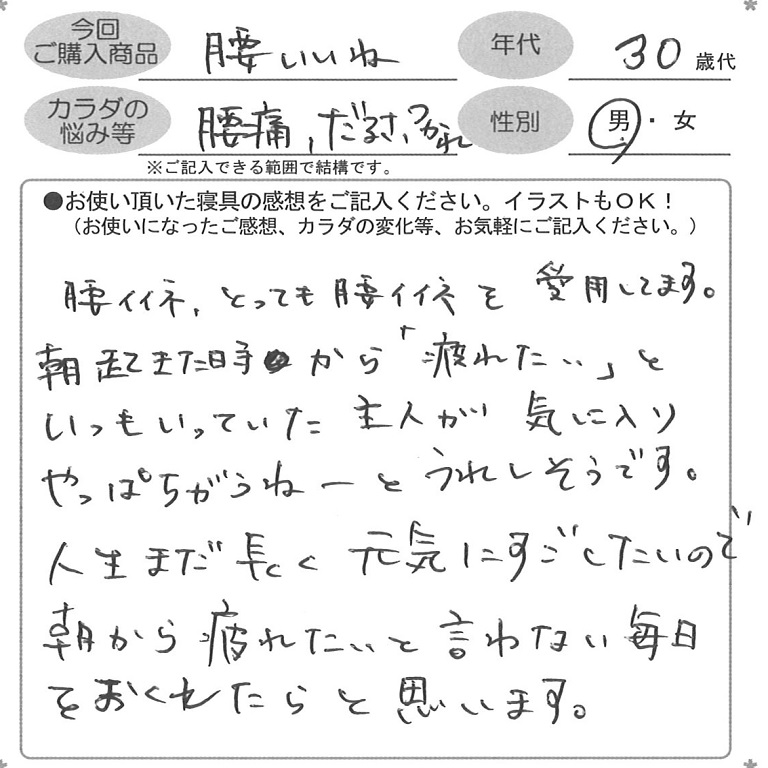 今回
ご購入商品
腰いいね
年代
30 歳代
カラダの
悩み等
腰痛、だるさ、つかれ
性別
男・女
※ご記入できる範囲で結構です。
●お使い頂いた寝具の感想をご記入ください。イラストもOK！
（お使いになったご感想、カラダの変化等、お気軽にご記入ください。）
腰イイネ、とっても腰イイネを愛用してます。
朝起きた時から「疲れた…」と
いつもいっていた主人が気に入り
やっぱちがうねーとうれしそうです。
人生まだ長く元気にすごしたいので
朝から疲れたいと言わない毎日
をおくれたらと思います。